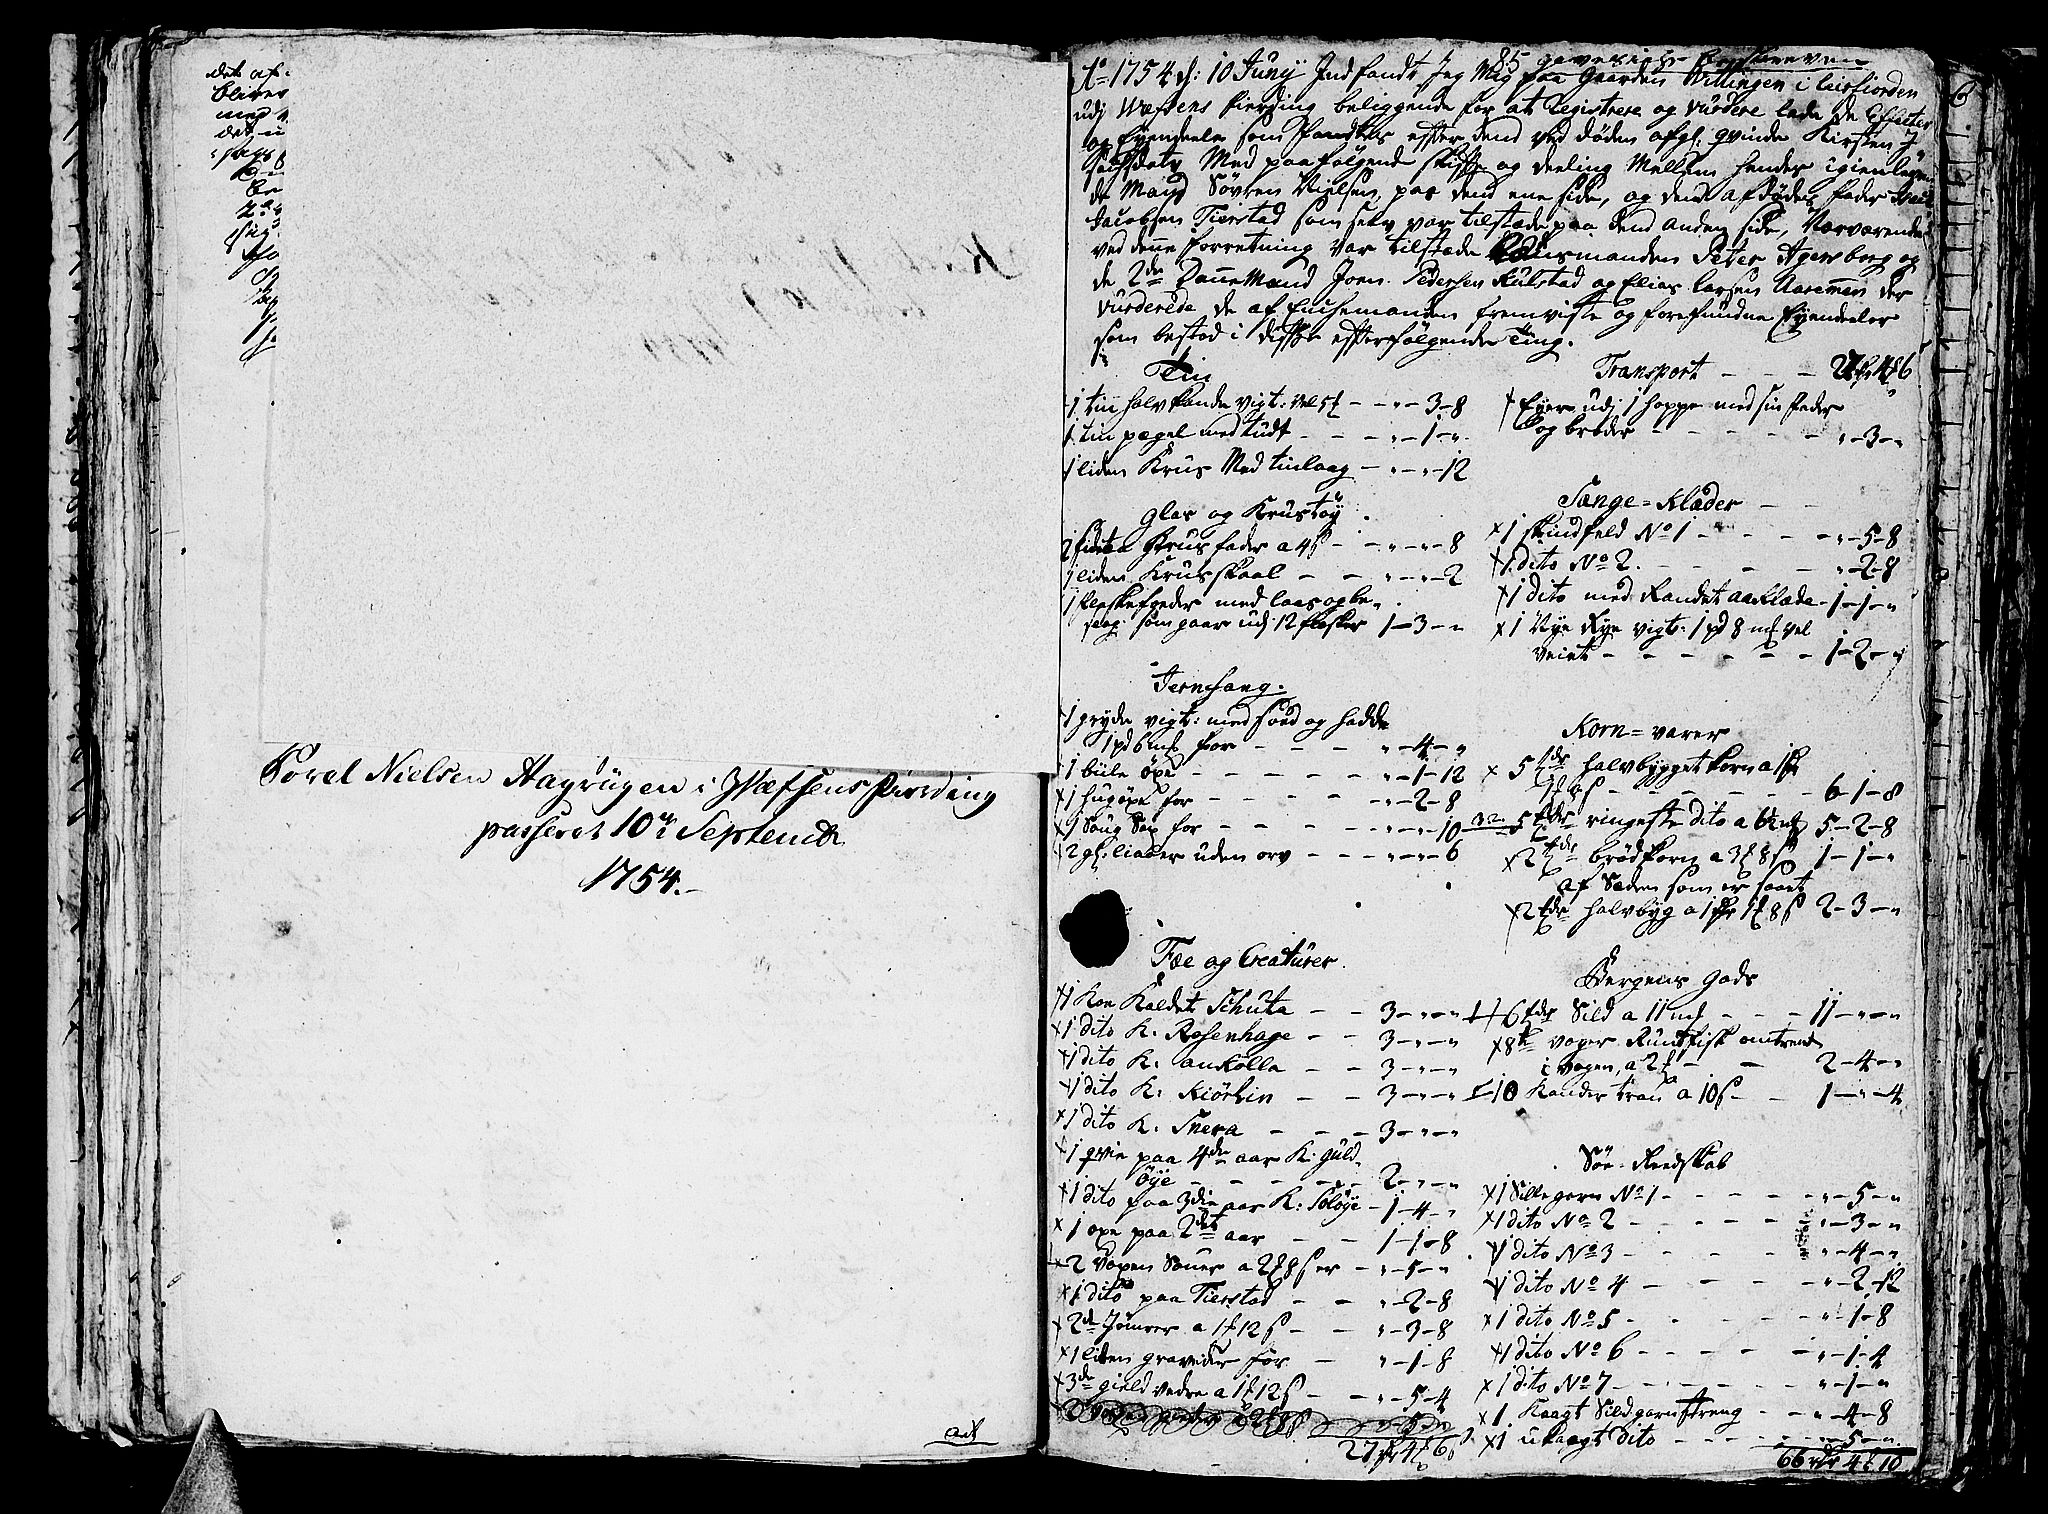 det af
bliver
med
det
Sorel Nielsen Hagrügen i Wefsens Fierding
passeret 10de Septembr
1754.
act
85
Ao 1754 d: 10 Juny Indfandt Jeg Mig paa Gaarden Willingen i Leisfiorden
udj Wefsens fierding beliggende for at Registrere og vurdere lade de Effecter
og Eyendeele som fandtes effter dend ved døden afg: qvinde Kirsten J
sachsdatr Med paafølgende skiffte og deeling Mellem hendes igienlevende
Mand Søvren Nielsen, paa dend ene side, og dend afdødes fader Isach
Jacobsen Tierstad som selv var tilstæde paa dend anden side, Nærværende
ved denne forretning var tilstæde Lensmanden Peter Agersborg og
de 2de DanneMænd Joen Pedersen Rulstad og Elias Larsen Aaremmen der
vurderede de af Enchemanden fremviste og forefundne Eyendeeler
som bestod i disse effterfølgende Ting.
Tin
1 tin halvkande vigt: vel 5 # - - " - 3 - 8
1 tin pægel med tudt - - - " - 1 - "
1 liden Krus Med tinlaag - " - " - 12
Glas og Krustøy
2 smaa Krus fader a 4 s - - " - " - 8
1 liden Krusskaal - - " - " - 2
1 flaskefoeder med laas og be-
slag som gaar udj 12 flasker 1 - 3 - "
Jernfang.
1 gryde vigt: med hod og hadde
1 pd 6 mk for - - - " - 4 - "
1 bule øxe - - - " - 1 - 12
1 hugøxe for - - - " - 2 - 8
1 Saug for - - - " - " - 10
2 gl: liaaer uden orv - - - " - " - 6
Fæe og Creaturer
1 Koe Kaldet Schuta - - 3 - " - "
1 dito K: Rosenhage - - 3 - " - "
1 dito K: ankolla - - 3 - " - "
1 dito K: Kiørlin - - 3 - " - "
1 dito K: Snera - - - 3 - " - "
1 qvie paa 4de aar K: guld
øye - - - - - 2 - " - "
1 dito paa 3die aar K: Soløye - 1 - 4 - "
1 oxe paa 2det aar - - 1 - 1 - 8
2 voxen Souer a 2 # 8 s er - " - 5 - "
1 dito paa Tierstad - - " - 2 - 8
2de Jømrer a 1 # 12 s - - " - 3 - 8
1 liden graveder for - " - 1 - 8
3de gield vedre a 1 # 12 s - - " - 5 - 4
27 # 4 # 6
Transport - - - 27 # 4 # 6
Eyer udj 1 hoppe med sin fader
og broder - - - - - " - 3 - "
Sænge=Klæder
1 skindfeld No 1 - - - - " - 5 - 8
1 dito No 2. - - - - " - 2 - 8
1 dito med Randet aaklæde - 1 - 1 - "
1 Nye Rye vigt: 1 pd 8 mk vel
veiet - - - - - - 1 - 2 - "
Korn=varer
5 tdr halvbygget korn a 1
1 # 8 s - - - - 6 - 1 - 8
5 tdr ringeste dito a 6 1/2 mk 5 - 2 - 8
2 tdr brødkorn a 3 # 8 s 1 - 1 - "
af Sæden som er saaet
2 tdr halvbyg a 1 1 # 8 s 2 - 3 - "
Bergens gods
6 tdr Sild a 11 mk - - - 11 - " - "
8te voger Rundfisk omtrent
i vogen, a 2 # - - 2 - 4 - "
10 Kander tran a 10 s - - 1 - " - 4
Søe-Reedskab
1 Sillegarn No 1 - - - - " - 5 - "
1 dito No 2 - - - - " - 3 - "
1 dito No 3 - - - - " - 4 - "
1 dito No 4 - - - - " - 2 - 12
1 dito No 5 - - - - " - 1 - 8
1 dito No 6 - - - - " - 1 - 4
1 dito No 7 - - - - " - 1 - "
1 Kaagt Sildgarnstreng - - " - 4 - 8
1 ukaagt dito - - - - " - 5 - "
66 rdr 4 # 10